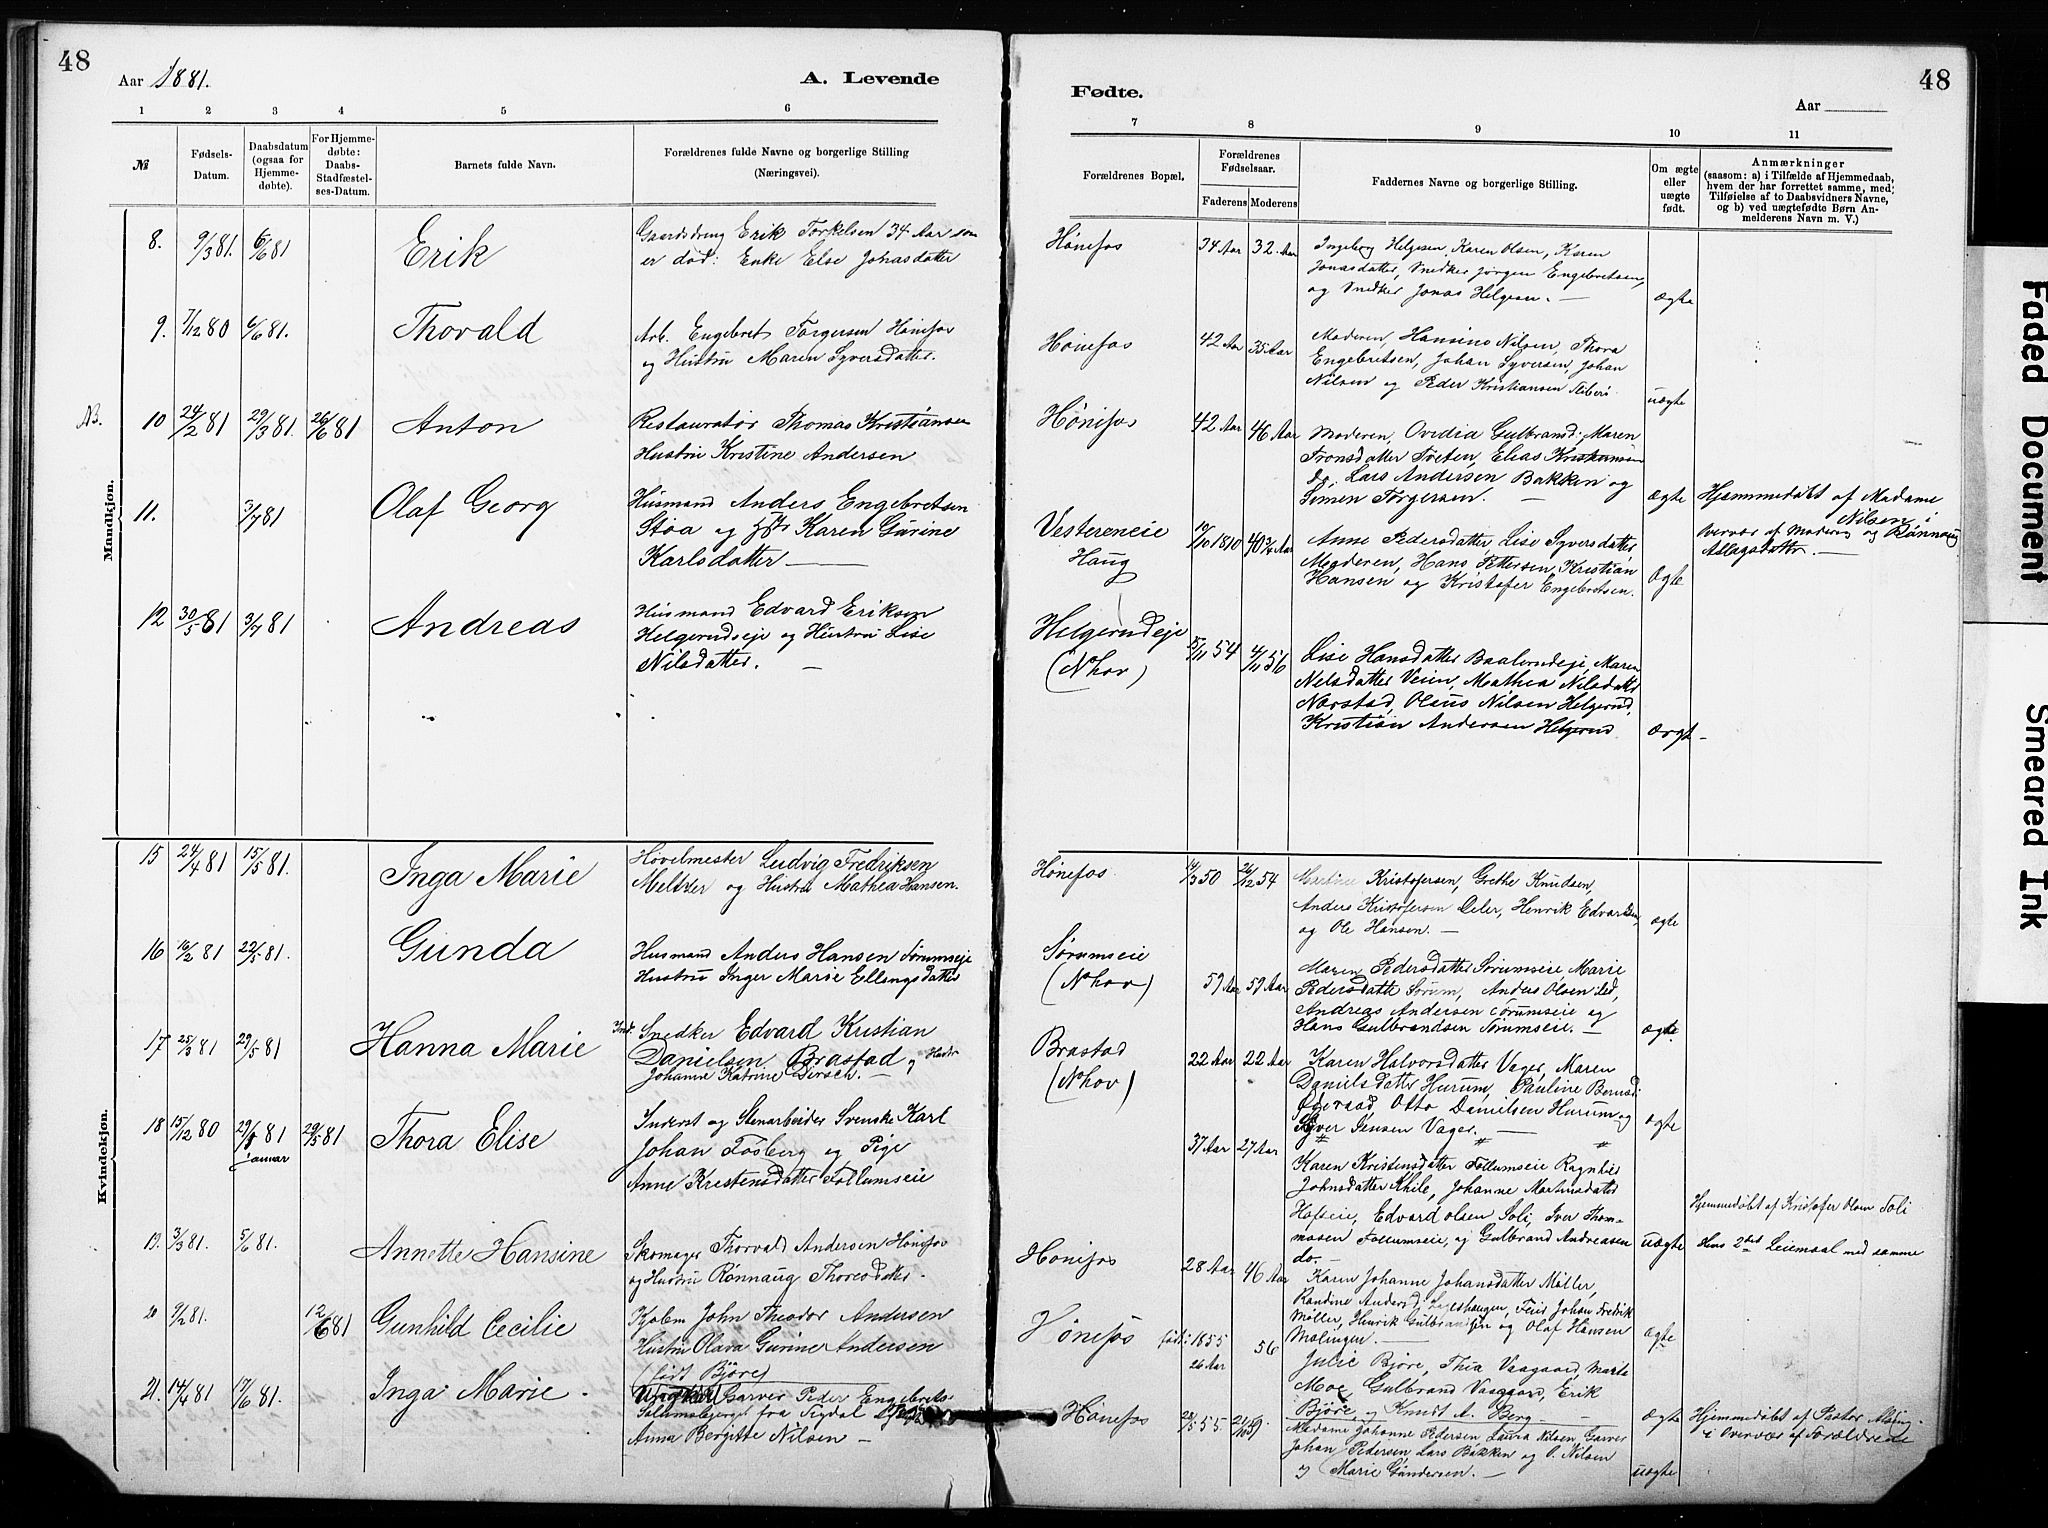 48
Aar 1881.
A. Levende
1 2 3 4 5 6
№
Fødsels-
Datum.
Daabsdatum
(ogsaa for
Hjemme-
døbte).
For Hjemme-
døbte:
Daabs-
Stadfæstel-
ses-Datum.
Barnets fulde Navn.
Forældrenes fulde Navne og borgerlige Stilling
(Næringsvei).
Mandkjøn.
8. 9/3 81. 6/6 81 Erik
Gaardsdreng Erik Torkelsen 34 Aar som
er død: Enke Else Jonasdatter
9. 7/12 80 6/6 81. Thorvald
Arb. Engebret Torgersen Hønefos
og Hustru Maren Syversdatter.
NB. 10 24/2 81 29/3 81. 26/6 81 Anton
Restauratør Thomas Kristiansen
Hustru Kristine Andersen
11. 3/7 81 Olaf Georg
Husmand Anders Engebretsen
Støa og Karen Gurine
Karlsdatter —
12 30/5 81 3/7 81 Andreas
Husmand Edvard Eriksen
Helgerudseje og Hustru Lise
Nilsdatter. —
Kvindekjøn.
15 24/4 81 15/5 81. Inga Marie
Høvelmester Ludvig Fredriksen
Meltzer og Hustru Mathea Hansen.
16 16/2 81 22/5 81. Gunda
Husmand Anders Hansen Sørumseje
Hustru Inger Marie Ellingsdatter
17 25/3 81 29/5 81 Hanna Marie
Inds. Snedker Edvard Kristian
Danielsen Brastad og Hustr
Johanne Katrine Dirsch. —
18 15/12 80 29/1 81 januar 29/5 81 Thora Elise
Inderst og Stenarbeider Svenske Karl
Johan Fosberg og Pige
Anne Kristensdatter Follumseie
19. 3/3 81. 5/6 81. Annette Hansine
Skomager Thorvald Andersen Hønefos
og Hustru Rønnaug Thoresdatter.
20 9/2 81. 12/6 81 Gunhild Cecilie
John Theodor Andersen
Hustru Olava Gurine Andersen
(født Bjøre)
21. 14/4 81 17/6 81. Inga Marie.
Garver Peder Engebrets-
fra Sigdal
Anna Bergitte Nilsen —
48
Fødte.
Aar
7 8 9 10 11
Forældrenes Bopæl.
Forældrenes
Fødselsaar.
Faderens Moderens
Faddernes Navne og borgerlige Stilling.
Om ægte
eller
uægte
født.
Anmærkninger
(saasom: a) i Tilfælde af Hjemmedaab,
hvem der har forrettet samme, med
Tilføielse af to Daabsvidners Navne,
og b) ved uægtefødte Børn An-
melderens Navn m. V.)
Hønefos 34 Aar 32. Aar
Ingeborg Helgesen, Karen Olsen, Karen
Jonasdatter, Snedker Jørgen Engebretsen,
og Snedker Jonas Helgesen. — ægte
Hønefos 42 Aar 35 Aar
Moderen, Hansine Nilsen, Thora
Engebretsen, Johan Syversen, Johan
Nilsen og Peder Kristiansen uægte
Hønefos 42 Aar 46 Aar
Moderen, Ovidia Gulbrandsd: Maren
Tronsdatter Tveten, Elias Kristiansen
do, Lars Andersen Bakken og
Simen Torgersen. — ægte
Hjemmedøbt af Madame
Nilsen i
Overvær af Moderen og Rønnaug
Aslagsdatter. —
Vestereneie
Haug
10/10 1810 40 3/4 Aar
Anne Pedersdatter, Lise Syversdatter,
Moderen, Hans Pettersen, Kristian
Hansen og Kristofer Engebretsen. Ægte
Helgerudeje
(Nhov)
5/11 54 4/11 56
Lise Hansdatter Baalerudeje, Maren
Nilsdatter Veien, Mathea Nilsdatter
Norstad, Olaus Nilsen Helgerud,
Kristian Andersen Helgerud. ægte
Hønefos 14/3 50 21/12 54
Kristofersen, Grethe Knudsen,
Anders Kristofersen Oeler, Henrik Edvardsen,
og Ole Hansen. — ægte
Sørumseie
(Nhov)
59 Aar 59 Aar
Maren Pedersdatter Sørumseie, Marie
Pedersdatter Sørum, Anders Olsen ibd,
Andreas Andersen Sørumseie og
Hans Gulbrandsen Sørumseie. — ægte
Brastad
(Nhov)
22 Aar 22 Aar
Karen Halvorsdatter Vager, Maren
Danielsdatter Hurum, Pauline Bernsd:
Øderaad, Otto Danielsen Hurum og
Syver Jensen Vager. — ægte
37 Aar 27 Aar
Karen Kristensdatter Follumseie Ragnhild
Johnsdatter Khile, Johanne Martinusdatter
Hofseie, Edvard Olsen Soli, Iver Thom-
masen Follumseie, og Gulbrand Andreasen
do. — uægte
Hjemmedøbt af Kristofer Olsen Soli
Hens 2det Leiemaal med samme
Hønefos 28 Aar 46 Aar
Karen Johanne Johansdatter Møller,
Randine Andersd: Johan Fredrik
Møller, Henrik Gulbrandsen og Olaf Hansen
Molingen. — ægte
Hønefos født: 1855 56
26 Aar
Julie Bjøre, Thia Vaagaard, Marte
Moe, Gulbrand Vaagaard, Erik
Bjøre, og Knudt A. Berg — ægte
Hjemmedøbt af Pastor
i Overvær af Forældrene
Hønefos 28/5 55. 21/10 59.
Madame Johanne Pedersen, Laura Nilsen, Garver
Johan Pedersen, Lars Bakken og O. Nilsen
og Marie Gundersen. — uægte
Faded Document
Smeared Ink